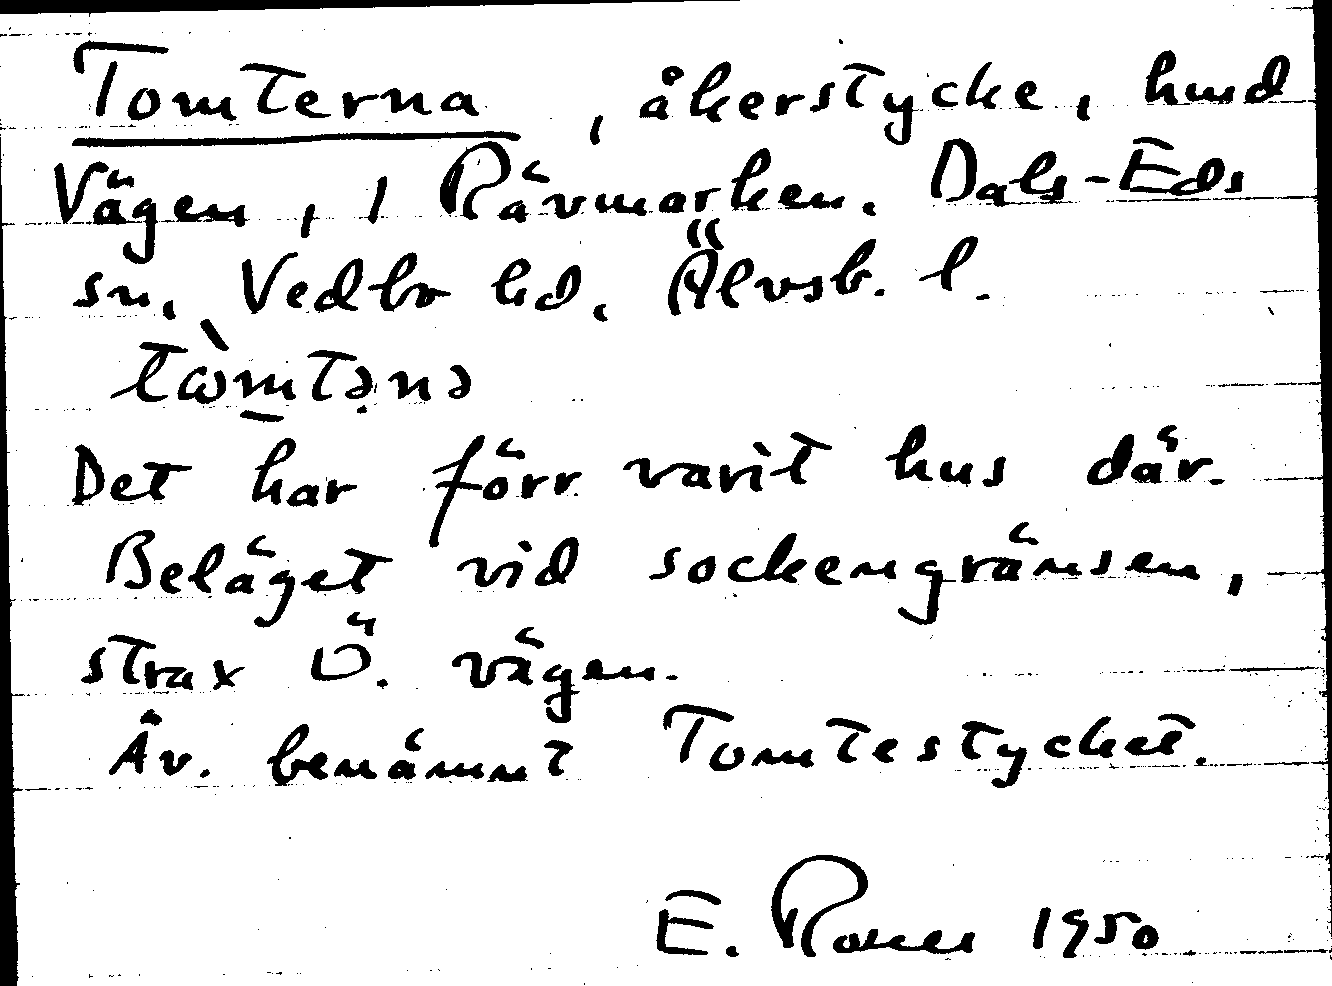 Tomterna, åkerstycke, hmd
Vägen, i Rävmarken. Dals-Eds
sn. Vedbo hd. Älvsb. l.
tòmtəṇə
Det har förr varit hus där.
Beläget vid sockengränsen,
strax Ö. vägen.
Äv. benämnt Tomtestycket.
E. 1950